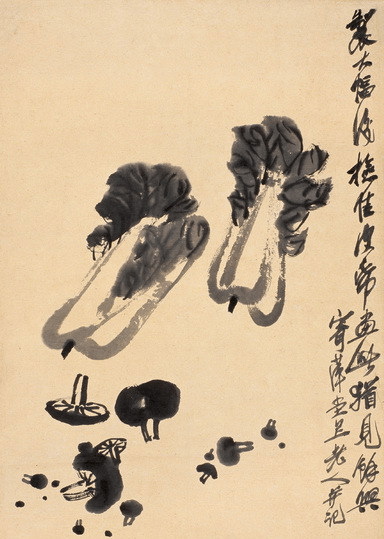 製大幅後佳畫此猶見餘興
寄萍堂上老人并記